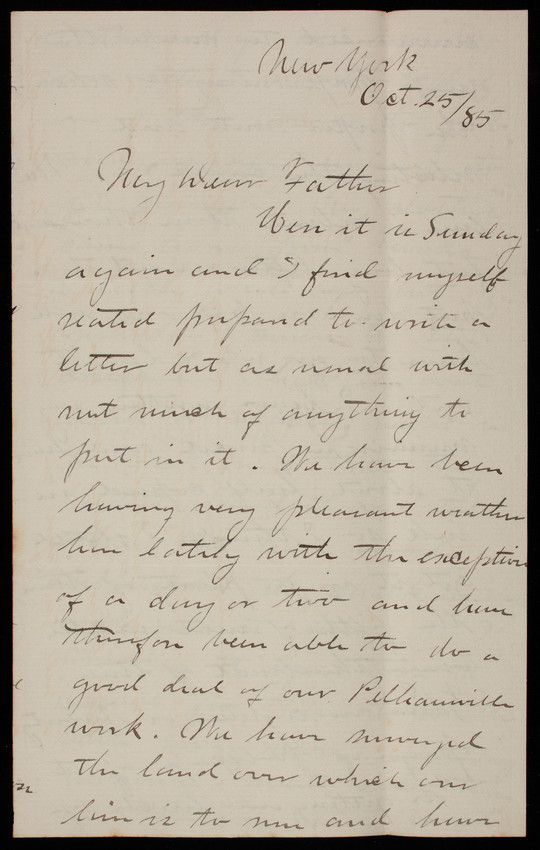 New York
Oct. 25/85
My Dear Father
Here it is Sunday
again and I find myself
seated prepared to write a
letter but as usual with
not much of anything to
put in it. We have been
having very pleasant weather
here lately with the exception
of a day or two and have
therefore been able to do a
good deal of our Pelhamville
work. We have surveyed
the land over which our
line is to run and have